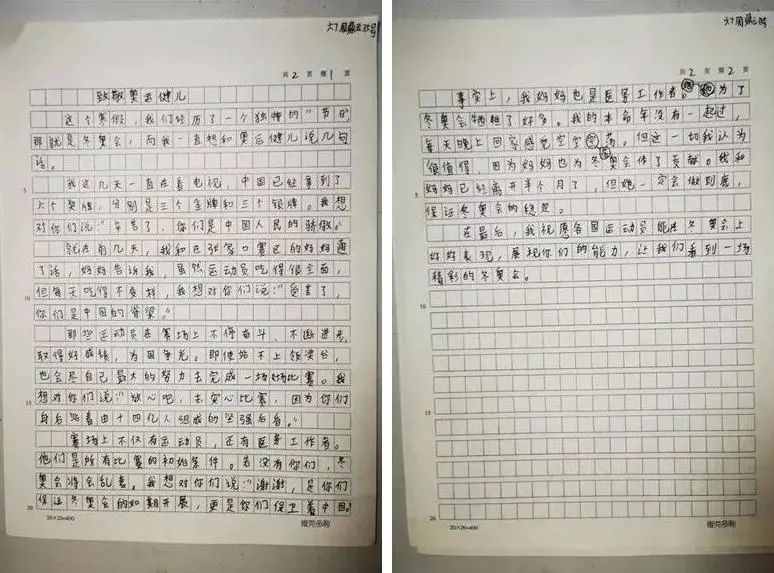 六7周鼎云35号
共 2 页 第 1 页
致敬奥运健儿
这个寒假，我们经历了一个独特的“节日”
那就是冬奥会，而我一直想和奥运健儿说几句
话。
5
我这几天一直在看电视，中国已经拿到了
六个奖牌，分别是三个金牌和三个银牌。我想
对你们说：“辛苦了，你们是中国人民的骄傲。”
就在前几天，我和在张家口赛区的妈妈通
了话，妈妈告诉我，虽然运动员吃得很全面，
10
但每天吃得不变样，我想对你们说：“受苦了，
你们是中国的脊梁。”
那些运动员在赛场上不停奋斗、不断进步，
取得好成绩，为国争光。即使站不上领奖台，
也会尽自己最大的努力去完成一场场比赛。我
15
想对你们说“放心吧，去安心比赛，因为你们
身后站着由十四亿人组成的坚强后盾。”
赛场上不仅有运动员，还有医务工作者。
他们是所有比赛的初始条件。若没有你们，冬
奥会将会乱套。我想对你们说：“谢谢，是你们
20
保证冬奥会的如期开展，更是你们保卫着中国。”
20×20=400
维克多利
六7周鼎云35号
共 2 页 第 2 页
事实上，我妈妈也是医务工作者。她为了
冬奥会牺牲了好多。我的本命年没有一起过，
每天晚上回家感觉空空荡荡。但这一切我认为
很值得，因为妈妈也为冬奥会作了贡献。我和
5
妈妈已经离开半个月了，但她一定会做到底，
保证冬奥会的稳定。
在最后，我祝愿各国运动员能在冬奥会上
好好表现，展现你们的能力，让我们看到一场
精彩的冬奥会。
10
15
20
20×20=400
维克多利